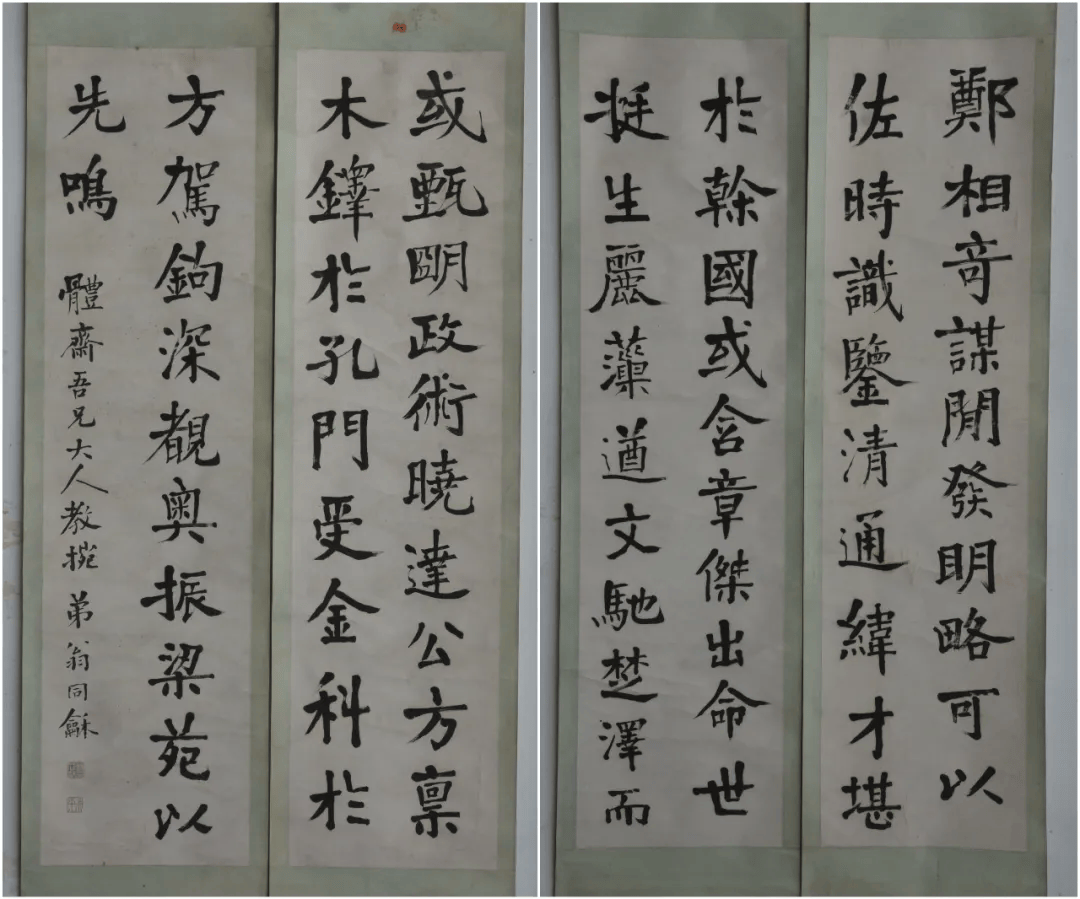 鄭相奇謀閒發明略可以
佐時識鑒清通緯才堪
於幹國或含章傑出命世
挺生麗藻遒文馳楚澤而
或甄明政術曉達公方稟
木鐸於孔門受金科於
方駕鉤深覩奧振梁苑以
先鳴
體齋吾兄大人教捥 弟翁同龢